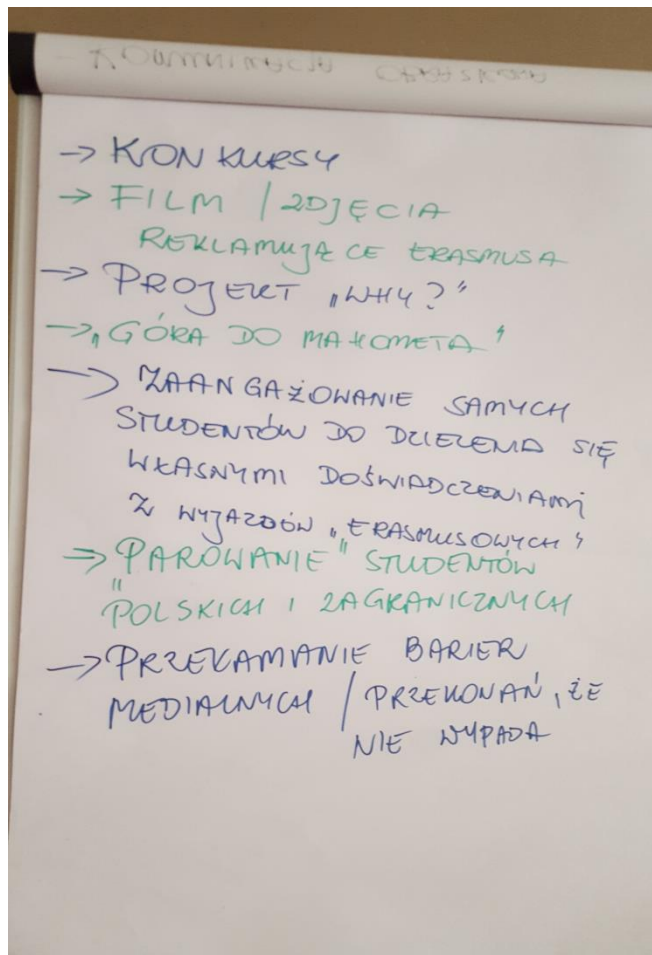 - KOMUNIKACJA
→ KONKURSY
→ FILM / ZDJĘCIA
REKLAMUJĄCE ERASMUSA
→ PROJEKT „WHY?”
→ „GÓRA DO MAHOMETA”
→ ZAANGAŻOWANIE SAMYCH
STUDENTÓW DO DZIELENIA SIĘ
WŁASNYMI DOŚWIADCZENIAMI
Z WYJAZDÓW „ERASMUSOWYCH”
→ "PAROWANIE" STUDENTÓW
POLSKICH I ZAGRANICZNYCH
→ PRZEŁAMANIE BARIER
MEDIALNYCH / PRZEKONAŃ, ŻE
NIE WYPADA